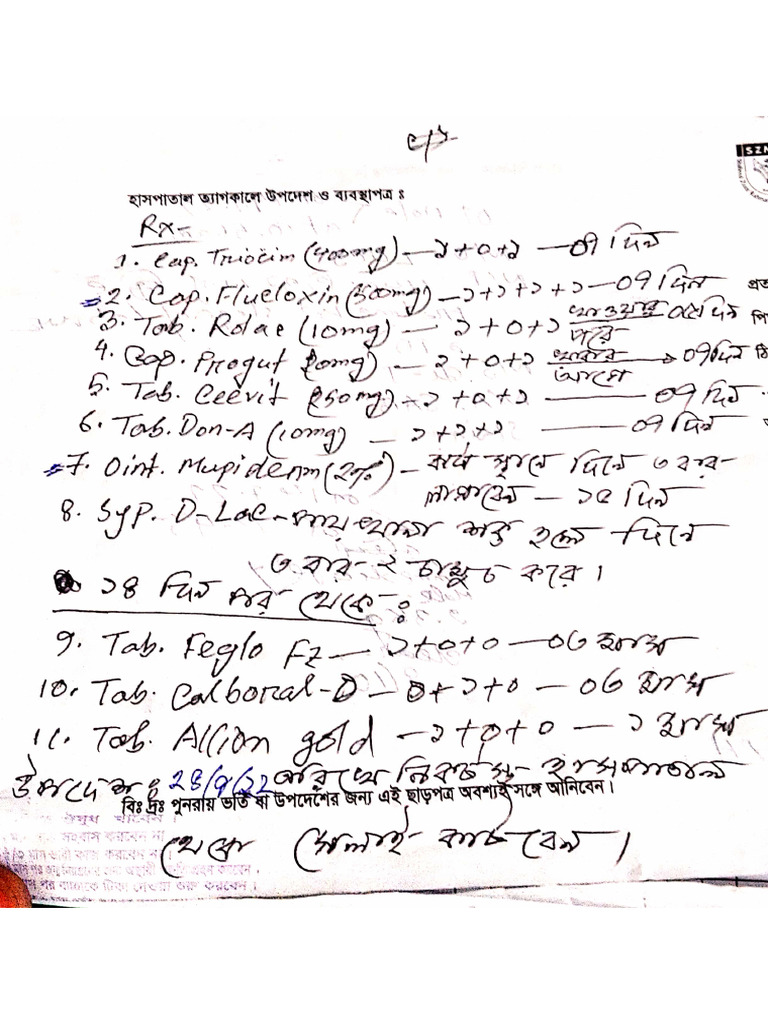 SZM
হাসপাতাল ত্যাগকালে উপদেশ ও ব্যবস্থাপত্র ঃ
Rx-
1. Cap. Triocim (400mg) — ১+০+১ — ০৭ দিন
2. Cap. Flucloxin (500mg) — ১+১+১+১ — ০৭ দিন
3. Tab. Rolac (10mg) — ১+০+১ খাওয়ার পরে ০৫ দিন
4. Cap. Progut (20mg) — ১+০+১ খাবার আগে ০৭ দিন
5. Tab. Ceevit (250mg) — ১+০+১ — ০৭ দিন
6. Tab. Don-A (10mg) — ১+১+১ — ০৭ দিন
7. Oint. Mupiderm (2%) — কাটা স্থানে দিনে ৩ বার
লাগাবেন — ১৫ দিন
8. Syp. D-Lac - পায়খানা শক্ত হলে দিনে
৩ বার ২ চামুচ করে।
১৪ দিন পর থেকে ঃ
9. Tab. Feglo FZ — ১+০+০ — ০৩ মাস
10. Tab. Calboral-D — ০+১+০ — ০৩ মাস
11. Tab. Allion gold — ১+০+০ — ১ মাস
উপদেশ ঃ তারিখে নিকটস্থ হাসপাতাল
বিঃ দ্রঃ পুনরায় ভর্তি বা উপদেশের জন্য এই ছাড়পত্র অবশ্যই সঙ্গে আনিবেন।
থেকে সেলাই কাটবেন।